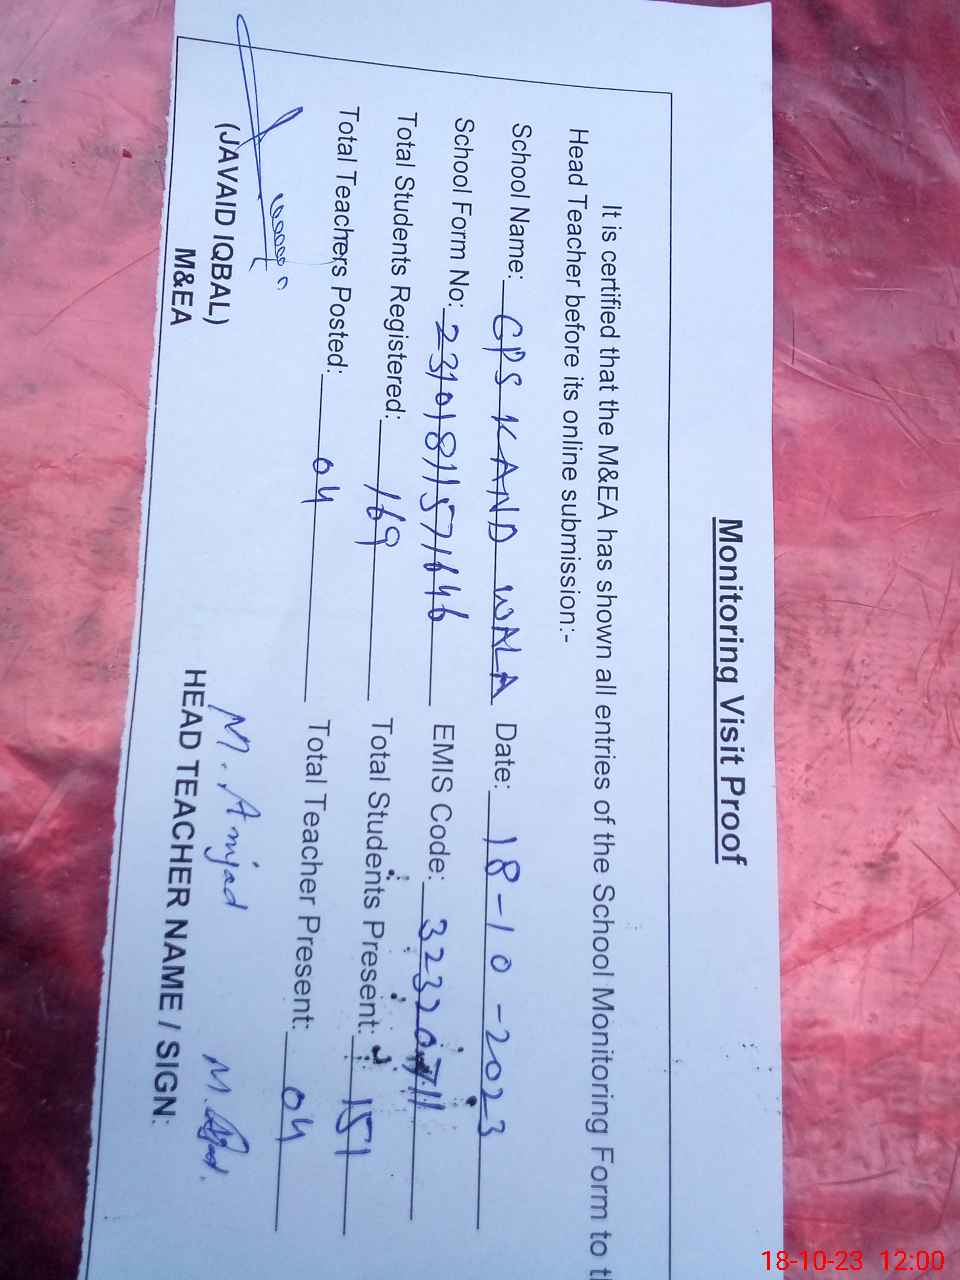 Monitoring Visit Proof
It is certified that the M&EA has shown all entries of the School Monitoring Form to
Head Teacher before its online submission:-
School Name: GPS KAND WALA Date: 18-10-2023
School Form No: 23101811571646 EMIS Code: 32320711
Total Students Registered: 169 Total Students Present: 151
Total Teachers Posted: 04 Total Teacher Present: 04
M. Amjad
(JAVAID IQBAL)
M&EA
HEAD TEACHER NAME / SIGN:
18-10-23 12:00